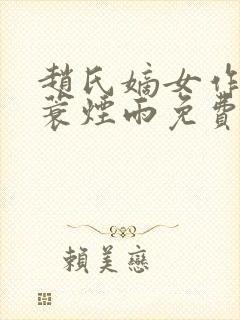 趙氏嫡女作
蓑煙雨免費
賴美戀